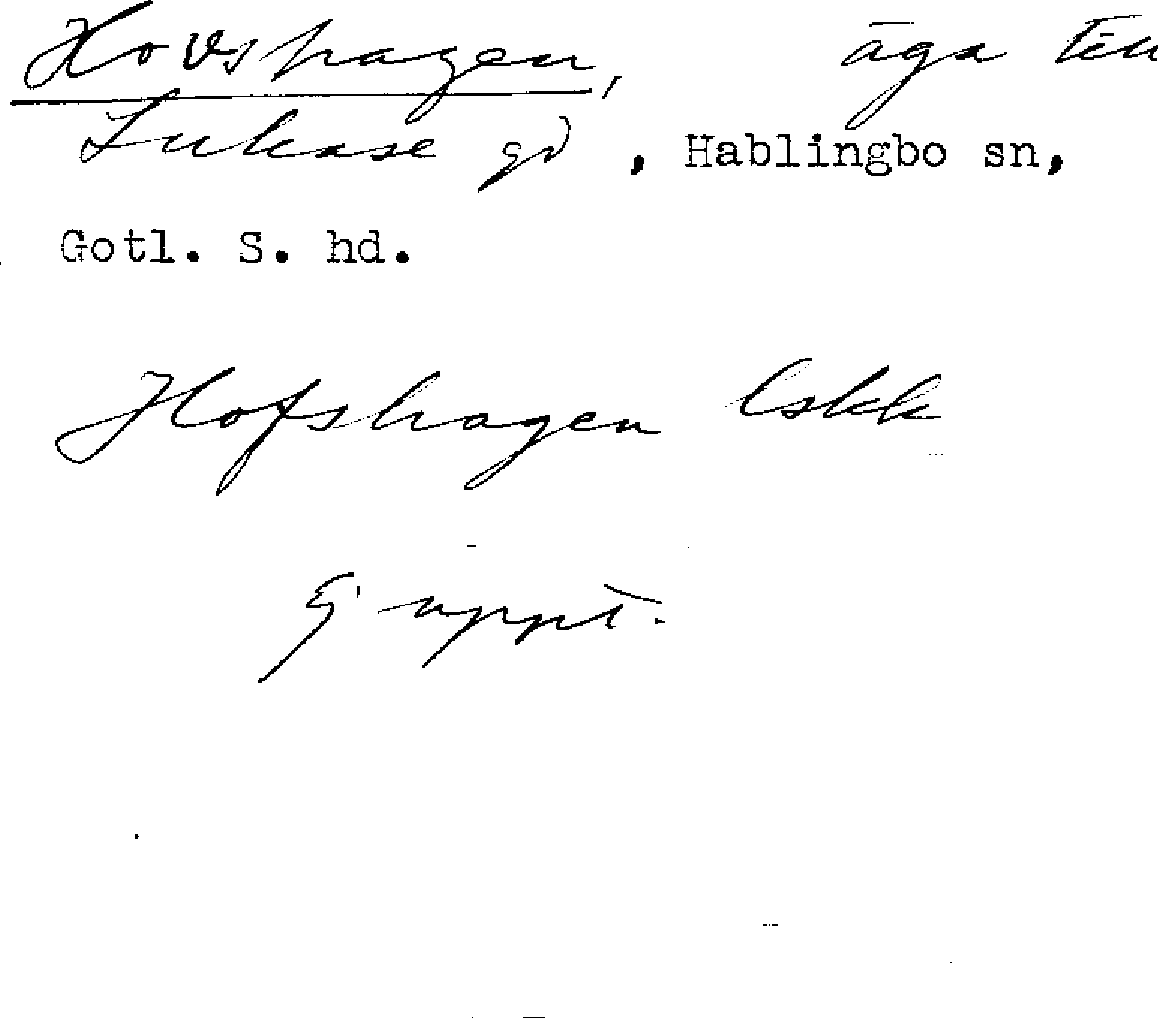 Hovshagen, äga till
Lukase gd, Hablingbo sn,
Gotl. S. hd.
Hofshagen lskk
Ej uppt.